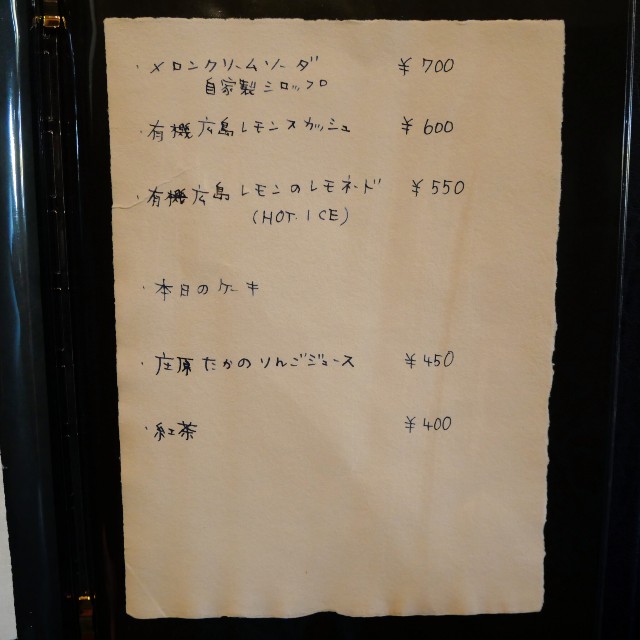 ・メロンクリームソーダ ¥700
自家製シロップ
・有機広島レモンスカッシュ ¥600
・有機広島レモンのレモネード ¥550
(HOT. ICE)
・本日のケーキ
・庄原たかのりんごジュース ¥450
・紅茶 ¥400